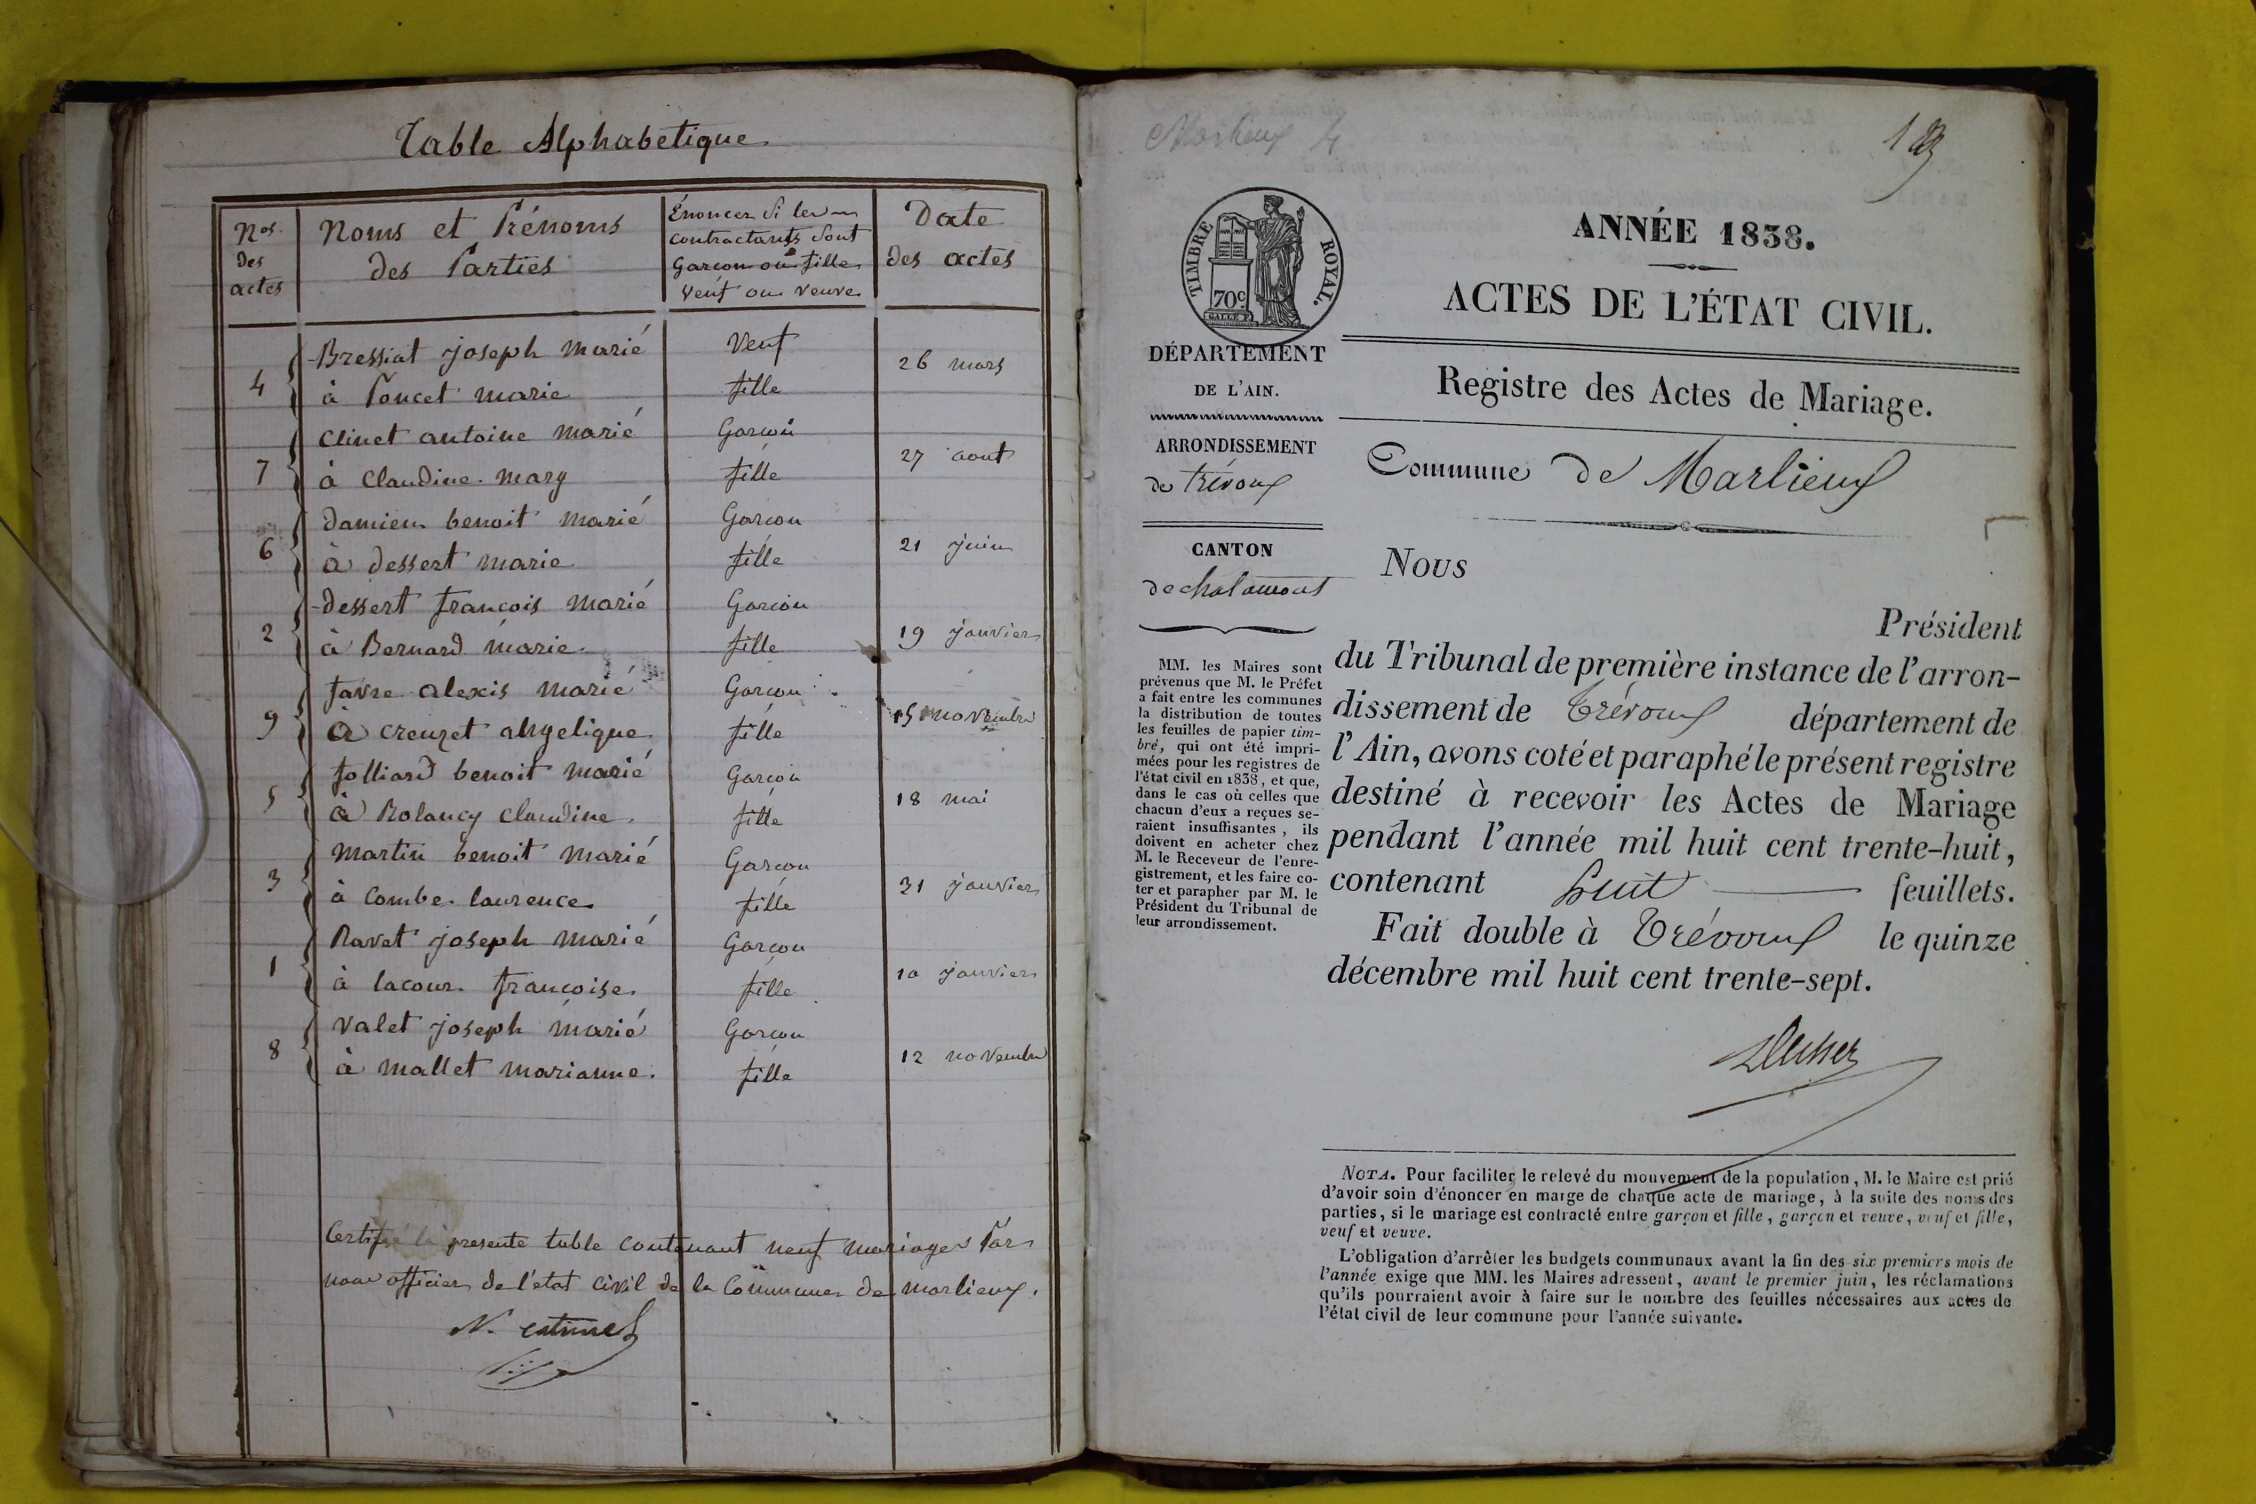 Table Alphabetique
Nos. des actes
Noms et Prénoms des Parties
Énoncer si les contractants sont Garçon ou fille veuf ou veuve
Date des actes
4 Bressiat joseph marié veuf 26 mars
à Poncet marie fille
7 Clinet antoine marié Garçon 27 aout
à Claudine mary fille
6 damien benoit marié Garçon 21 juin
à dessert marie fille
2 dessert françois marié Garçon 19 janvier
à Bernard marie fille
9 favre alexis marié Garçon 15 novembre
à creuzet angelique fille
5 folliard benoit marié Garçon 18 mai
à Rolancy claudine fille
3 Martin benoit marié Garçon 31 janvier
à Combe laurence fille
1 Ravet joseph marié Garçon 10 janvier
à lacour françoise fille
8 Valet joseph marié Garçon 12 novembre
à mallet marianne fille
Certifié la presente table contenant neuf mariages Par
nous officier de l'etat civil de la Commune de marlieux.
Marlieux 4
TIMBRE ROYAL.
70c.
DÉPARTEMENT
DE L'AIN.
ARRONDISSEMENT
de Trévoux
CANTON
de chalamont
MM. les Maires sont
prévenus que M. le Préfet
a fait entre les communes
la distribution de toutes
les feuilles de papier tim-
bré, qui ont été impri-
mées pour les registres de
l'état civil en 1838, et que,
dans le cas où celles que
chacun d'eux a reçues se-
raient insuffisantes, ils
doivent en acheter chez
M. le Receveur de l'enre-
gistrement, et les faire co-
ter et parapher par M. le
Président du Tribunal de
leur arrondissement.
ANNÉE 1838.
ACTES DE L'ÉTAT CIVIL.
Registre des Actes de Mariage.
Commune de Marlieux
Nous
Président
du Tribunal de première instance de l'arron-
dissement de Trévoux département de
l'Ain, avons coté et paraphé le présent registre
destiné à recevoir les Actes de Mariage
pendant l'année mil huit cent trente-huit,
contenant huit feuillets.
Fait double à Trévoux le quinze
décembre mil huit cent trente-sept.
NOTA. Pour faciliter le relevé du mouvement de la population, M. le Maire est prié
d'avoir soin d'énoncer en marge de chaque acte de mariage, à la suite des noms des
parties, si le mariage est contracté entre garçon et fille, garçon et veuve, veuf et fille,
veuf et veuve.
L'obligation d'arrêter les budgets communaux avant la fin des six premiers mois de
l'année exige que MM. les Maires adressent, avant le premier juin, les réclamations
qu'ils pourraient avoir à faire sur le nombre des feuilles nécessaires aux actes de
l'état civil de leur commune pour l'année suivante.